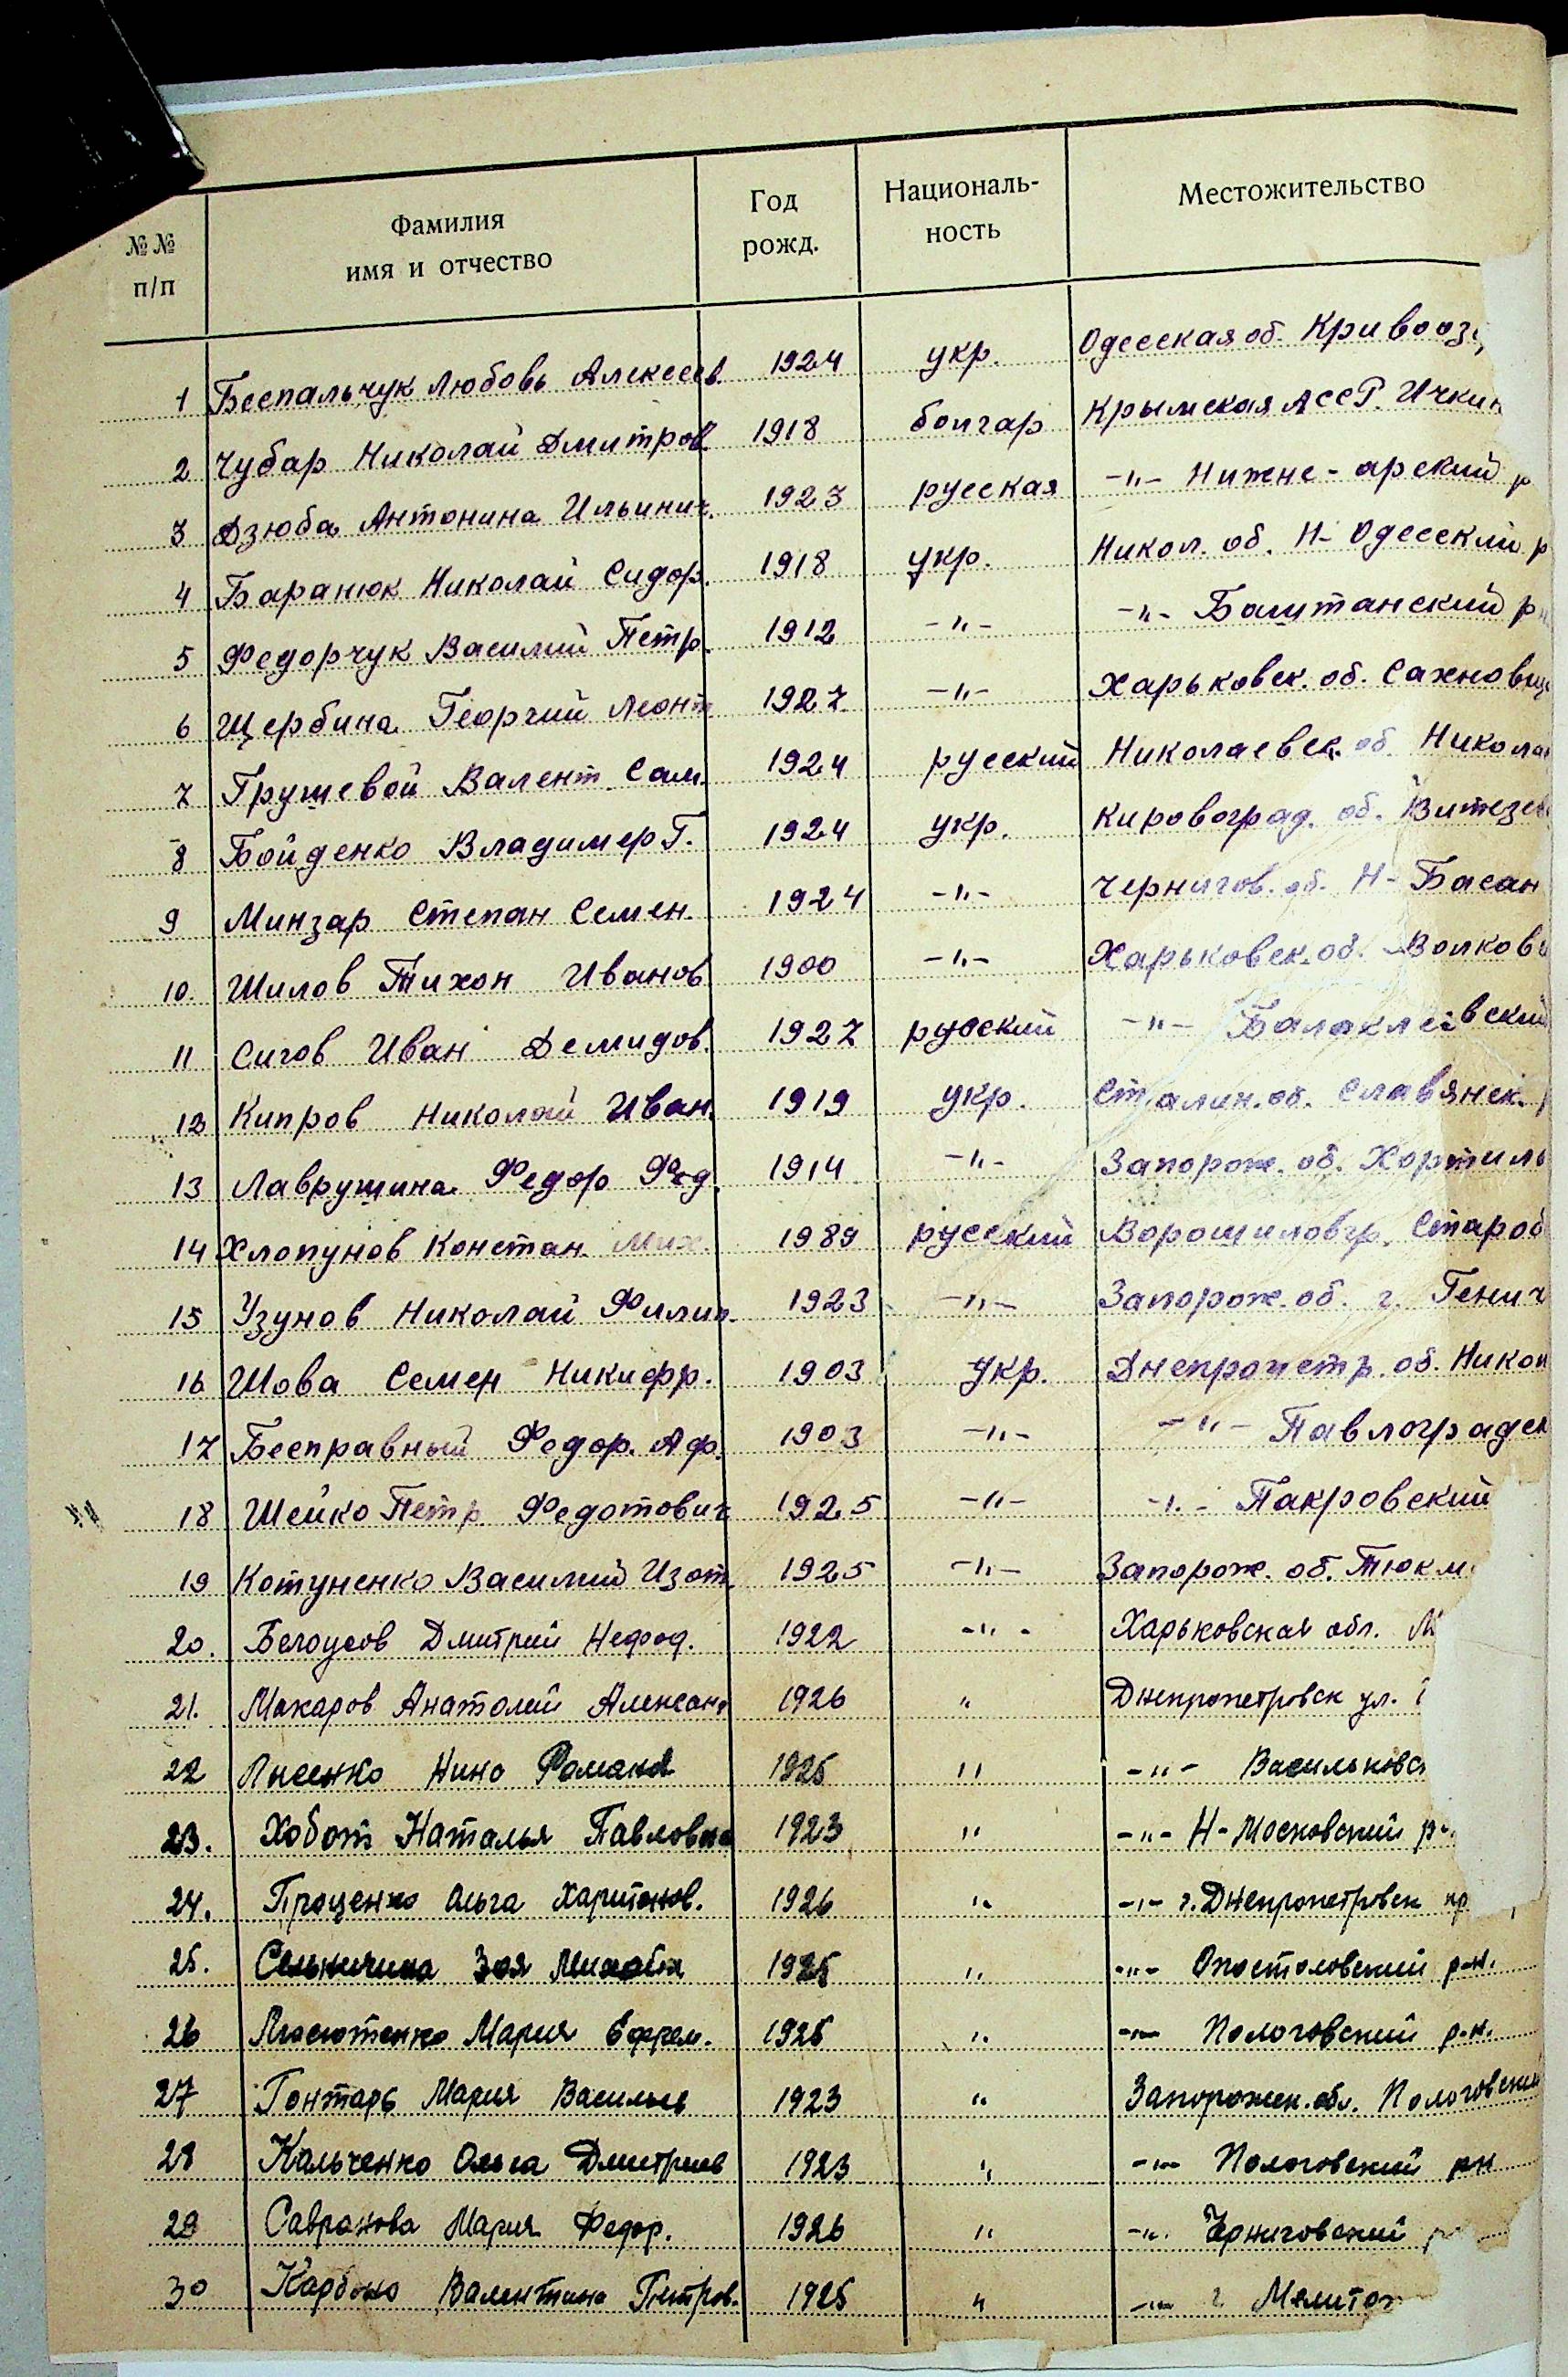 №№ п/п Фамилия имя и отчество Год рожд. Националь-ность Местожительство
1 Беспальчук Любовь Алексеев. 1924 укр. Одесская об. Кривооз
2 Чубар Николай Дмитров. 1918 болгар Крымская АССР. Ички
3 Дзюба Антонина Ильинич. 1923 русская -"- Нижне-арский р
4 Баранюк Николай Сидор. 1918 укр. Никол. об. Н-Одесский р
5 Федорчук Василий Петр. 1912 -"- -"- Баштанский р
6 Щербина Георгий Леонт 1927 -"- Харьковск. об. Сахновщ
7 Грушевой Валент. Сам. 1924 русский Николаевск. об. Никола
8 Бойденко Владимер Г. 1924 укр. Кировоград. об. Витязев
9 Минзар Степан Семен. 1924 -"- Чернигов. об. Н-Басан
10. Шилов Тихон Иванов 1900 -"- Харьковск. об. Волков
11 Сигов Иван Демидов. 1927 русский -"- Балаклеевский
12 Кипров Николай Иван. 1919 укр. Сталин. об. Славянск. р
13 Лаврушина Федор Фед. 1914 -"- Запорож. об. Хортиль
14 Хлопунов Констан. Мих. 1989 русский Ворошиловгр. Староб
15 Узунов Николай Филип. 1923 -"- Запорож. об. г. Генич
16 Шова Семен Никифр. 1903 Укр. Днепропетр. об. Никоп
17 Бесправный Федор. Аф. 1903 -"- -"- Павлоградск
18 Шейко Петр Федотович 1925 -"- -"- Пакровский
19 Котуненко Василий Изот. 1925 -"- Запорож. об. Тюкм
20. Белоусов Дмитрий Нефод. 1922 -"- Харьковская обл. М
21. Макаров Анатолий Александ 1926 " Днепропетровск ул.
22 Лисенко Нина 1925 " -"- Васильковс
23. Хобот Наталья Павловна 1923 " -"- Н-Московский р-
24. Проценко Ольга Харитонов. 1926 " -"- г. Днепропетровск пр
25. Зоя 1925 " -"- Опостоловский р-н.
26 Мария Ефрем. 1925 " -"- Пологовский р-н.
27 Гонтарь Мария Васильев 1923 " Запорожск. обл. Пологовский
28 Кальченко Ольга Дмитриев 1923 " -"- Пологовский рн
29 Савранова Мария Федор. 1926 " -"- Черниговский р
30 Валентина 1925 " -"- г. Мелитоп